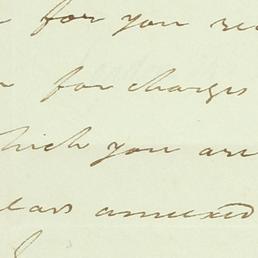 for you re
for charges
which you are
ears annexed